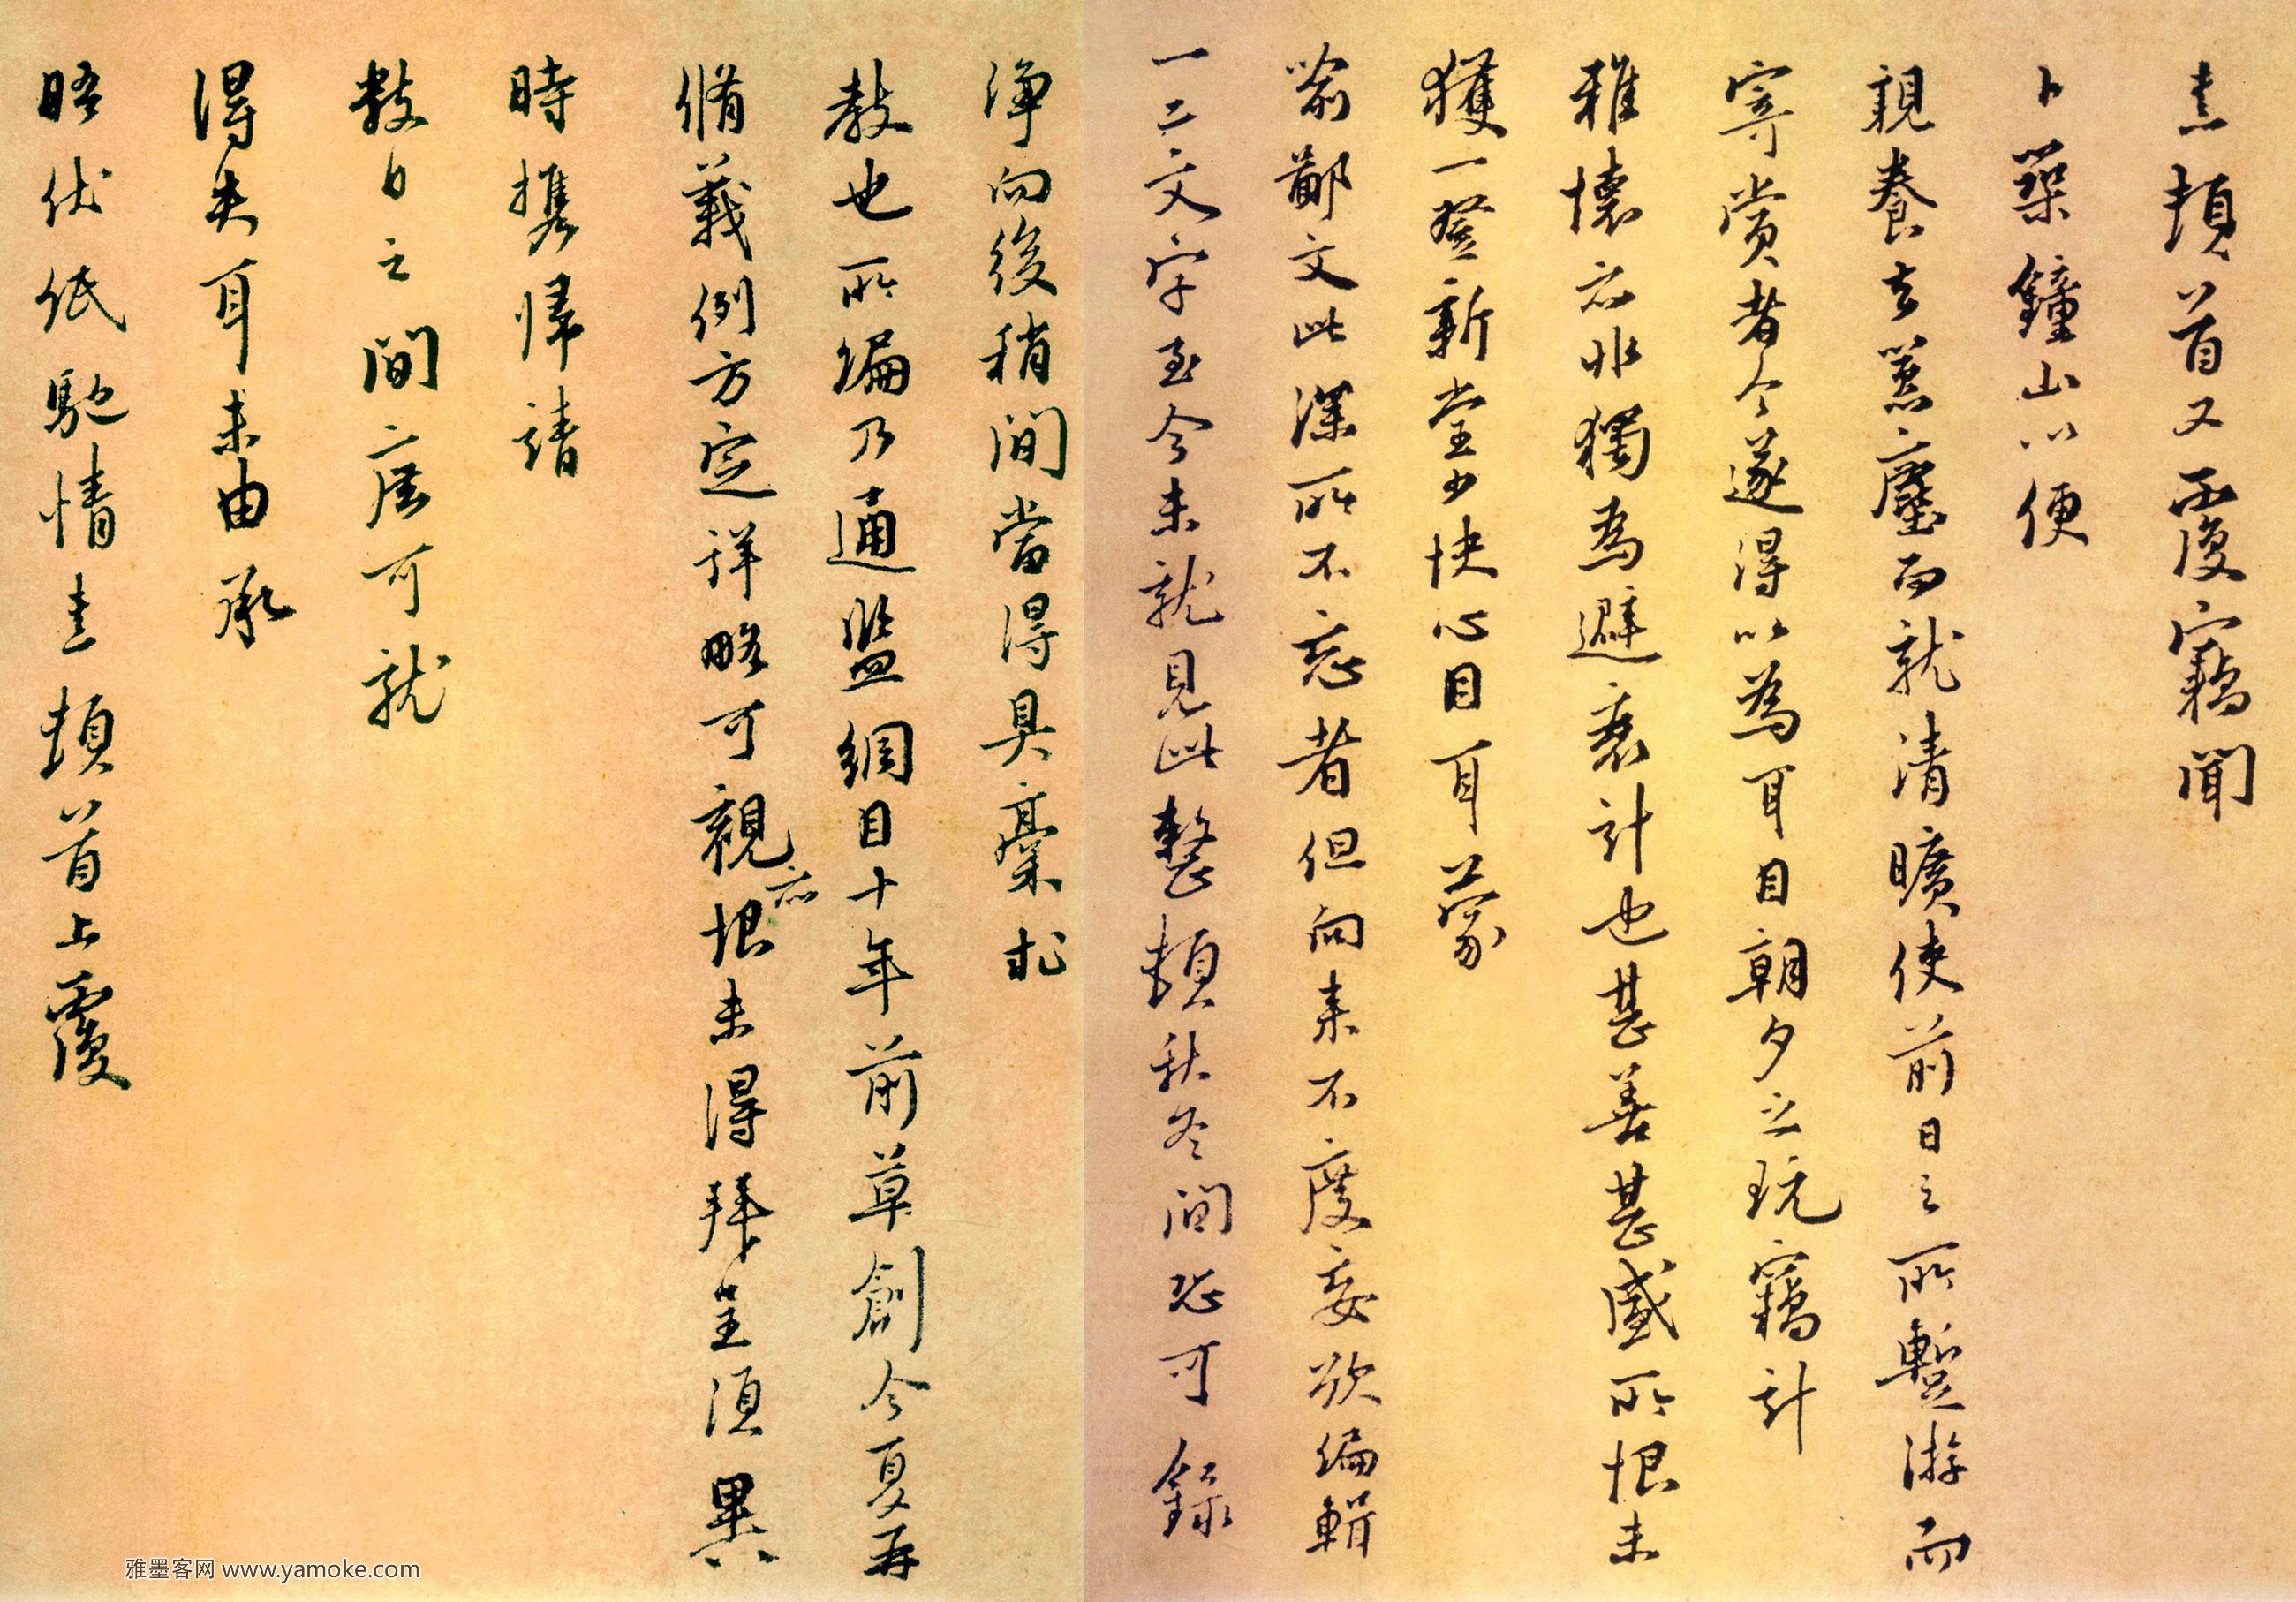 熹頓首又覆竊聞
卜築鐘山以便
親養去囂塵而就清曠使前日之所暫游而
寄賞者今遂得以為耳目朝夕之玩竊計
雅懷亦非獨為避衰計也甚善甚盛所恨未
獲一登新堂少快心目耳蒙
喻鄙文此深所不忘者但向來不度妄欲編輯
一二文字至今未就見此整頓秋冬間恐可錄
淨向後稍間當得具稾求
教也所編乃通鑑綱目十年前草創今夏再
脩義例方定詳略可觀亦恨未得拜呈須異
時攜歸請
教日之間度可就
得失耳未由承
晤伏紙馳情熹頓首上覆
雅墨客网 www.yamoke.com